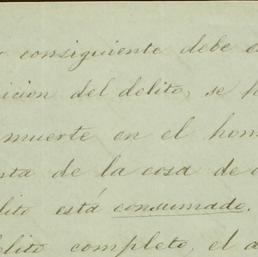 consiguiente debe
icion del delito, se
muerte en el hom
ta de la cosa de
lito está consumado.
elito completo, el a